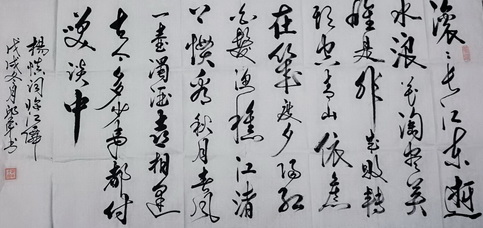 滚滚长江东逝
水浪花淘尽英
雄是非成败轉
头空青山依舊
在幾度夕陽红
白髮渔樵江渚
上惯看秋月春风
一壶濁酒喜相逢
古今多少事都付
笑谈中
楊慎词临江僊
戊戌冬月书